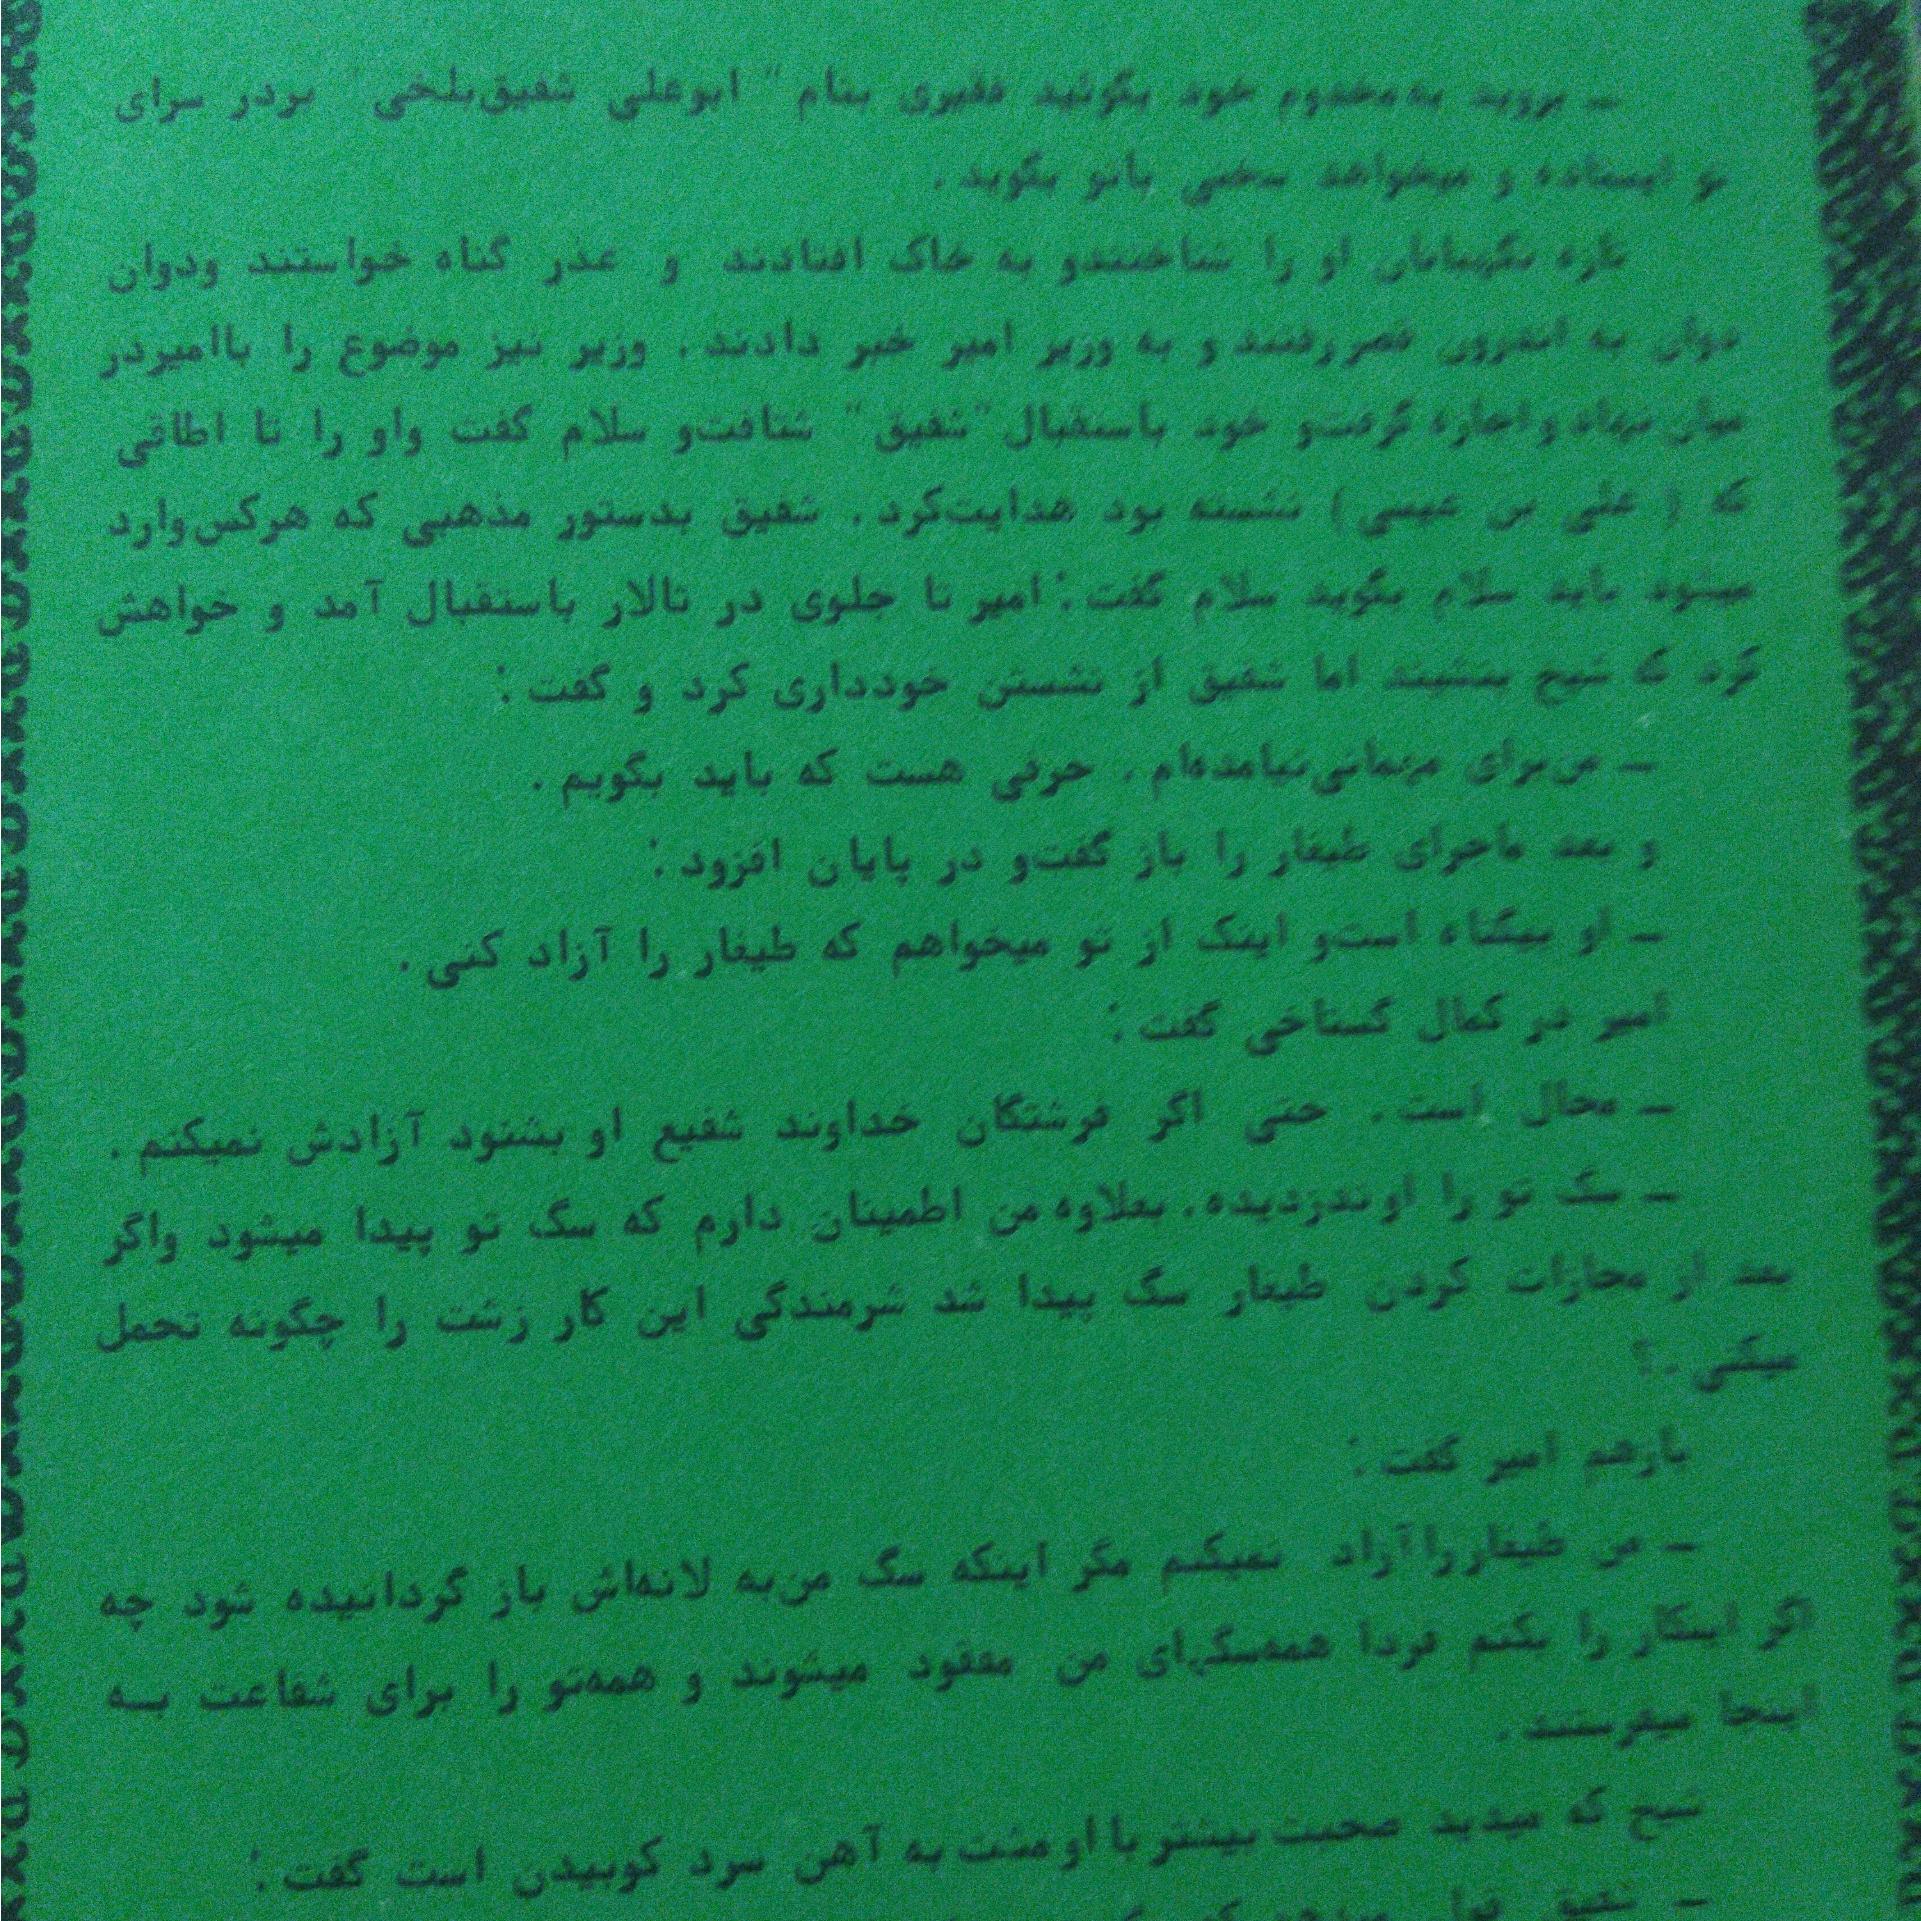 – بروید به مخدوم خود بگوئید فقیری بنام " ابوعلی شفیق‌بلخی " بردر سرای
تو ایستاده و میخواهد سخنی باتو بگوید .
تازه نگهبانان او را شناختندو به خاک افتادند و عذر گناه خواستند ودوان
دوان به اندرون قصررفتند و به وزیر امیر خبر دادند . وزیر نیز موضوع را باامیردر
میان نهاد و اجازه گرفت‌و خود باستقبال "شفیق" شتافت‌و سلام گفت واو را تا اطاقی
که ( علی بن عیسی ) نشسته بود هدایت‌کرد . شفیق بدستور مذهبی که هرکس‌وارد
میشود باید سلام بگوید سلام گفت : امیر تا جلوی در تالار باستقبال آمد و خواهش
کرد که شیخ بنشیند اما شفیق از نشستن خودداری کرد و گفت :
– من‌برای مهمانی‌نیامده‌ام . حرفی هست که باید بگویم .
و بعد ماجرای طیفار را باز گفت‌و در پایان افزود :
– او بیگناه است‌و اینک از تو میخواهم که طیفار را آزاد کنی .
امیر در کمال گستاخی گفت :
– محال است . حتی اگر فرشتگان خداوند شفیع او بشنود آزادش نمیکنم .
– سگ تو را او ندزدیده . بعلاوه من اطمینان دارم که سگ تو پیدا میشود واگر
بعد از مجازات کردن طیفار سگ پیدا شد شرمندگی این کار زشت را چگونه تحمل
میکنی .؟
بازهم امیر گفت :
– من طیفار را آزاد نمیکنم مگر اینکه سگ من‌به لانه‌اش باز گردانیده شود چه
اگر اینکار را بکنم فردا همه‌سگهای من مفقود میشوند و همه‌تو را برای شفاعت به
اینجا میفرستند .
شیخ که میدید صحبت بیشتر با او مشت به آهن سرد کوبیدن است گفت :
– شفیق